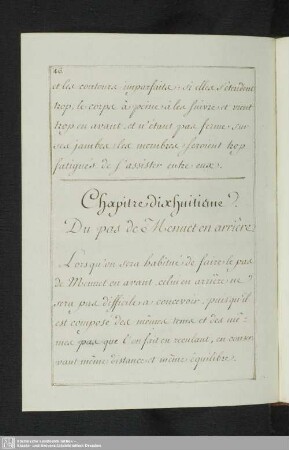 46
et les contours imparfaits. si elles s'etendent
trop, le corps à peine à les suivre et vient
trop en avant, et n'étant pas ferme sur
ses jambes, les membres seroient trop
fatigués de s'assister entre eux.
Chapitre dixhuitieme
Du pas de Menuet en arrière
Lorsqu'on sera habitué de faire le pas
de Menuet en avant, celui en arriere ne
sera pas difficile à concevoir, puisqu'il
est composé des mêmes tems et des mê-
mes pas que l'on fait en reculant, en obser-
vant même distance et même équilibre.